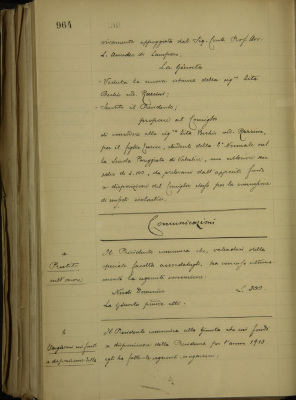 964
vivamente appoggiata dal Sig. Conte Prof. Avv.
L. Amedeo di Lampore.
La Giunta
- Veduta la nuova istanza della sig.ra Zita
Berlié ved.
- Sentito il Presidente;
propone al Consiglio
di concedere alla sig.ra Zita Berlié ved.
per il figlio studente della 2a Normale nel
la Scuola Pareggiata di un ulteriore sus
sidio di L. da prelevarsi dall'apposito fondo
a disposizione del Consiglio stesso per la concessione
di sussidi scolastici.
Comunicazioni
a
Prestiti
sull'onore
Il Presidente comunica che, valendosi della
speciale facoltà accordatagli, ha concesso ultima-
mente la seguente sovvenzione:
Nardi Domenico L. 300
La Giunta prende atto.
b
Elargizioni sui fondi
a disposizione della
Il Presidente comunica alla Giunta che sui fondi
a disposizione della Presidenza per l'anno 1913
egli ha fatto le seguenti elargizioni: